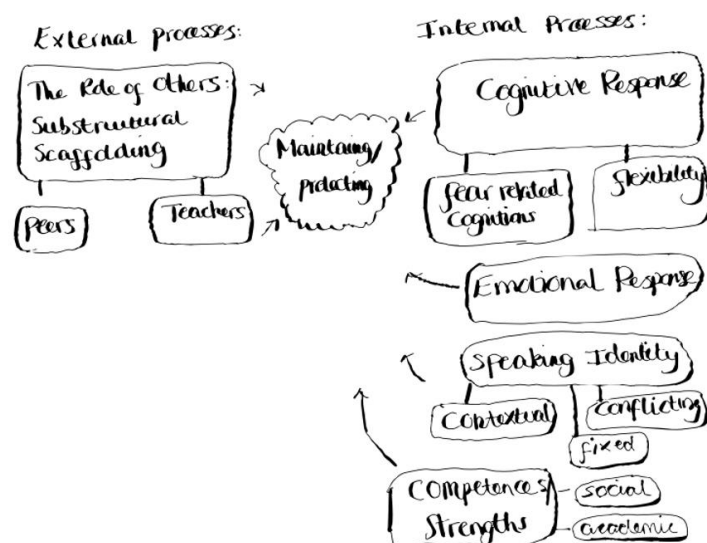 External processes:
The Role of Others:
Substructural
Scaffolding
Peers
Teachers
Maintaing/
protecting
Internal Processes:
Cognitive Response
fear related
Cognitions
flexibility
Emotional Response
Speaking Identity
Contextual
Conflicting
fixed
Competences/
Strengths
social
academic